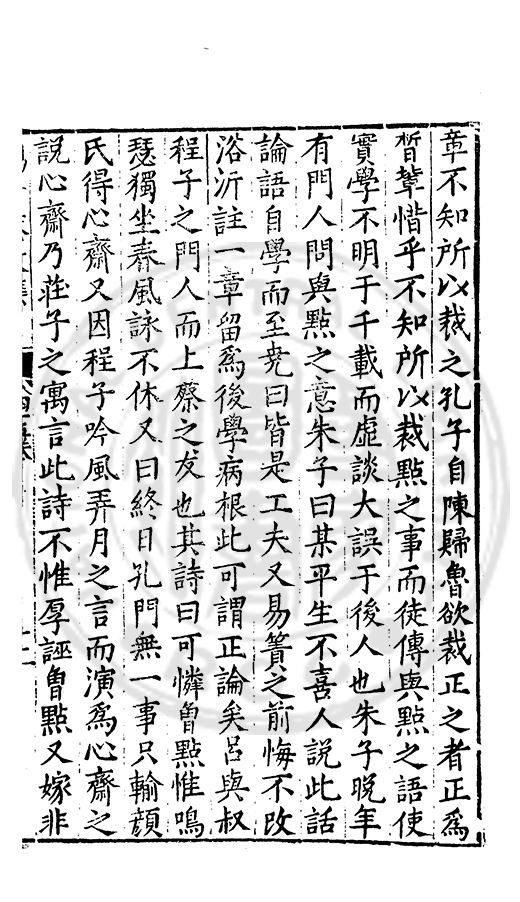 章不知所以裁之孔子自陳歸魯欲裁正之者正爲
晳輩惜乎不知所以裁點之事而徒傳與點之語使
實學不明于千載而虛談大誤于後人也朱子晚年
有門人問與點之意朱子曰某平生不喜人說此話
論語自學而至堯曰皆是工夫又易簀之前悔不改
浴沂註一章留爲後學病根此可謂正論矣呂與叔
程子之門人而上蔡之友也其詩曰可憐魯點惟鳴
瑟獨坐春風詠不休又曰終日孔門無一事只輸顔
氏得心齋又因程子吟風弄月之言而演爲心齋之
說心齋乃莊子之寓言此詩不惟厚誣魯點又嫁非